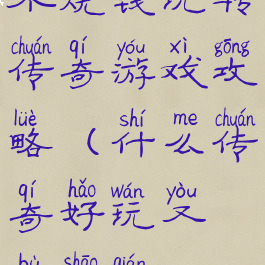 不烧钱玩转
chuán qí yóu xì gōng
传奇游戏攻
lüè shí me chuán
略（什么传
qí hǎo wán yòu
奇好玩又
bù shāo qián